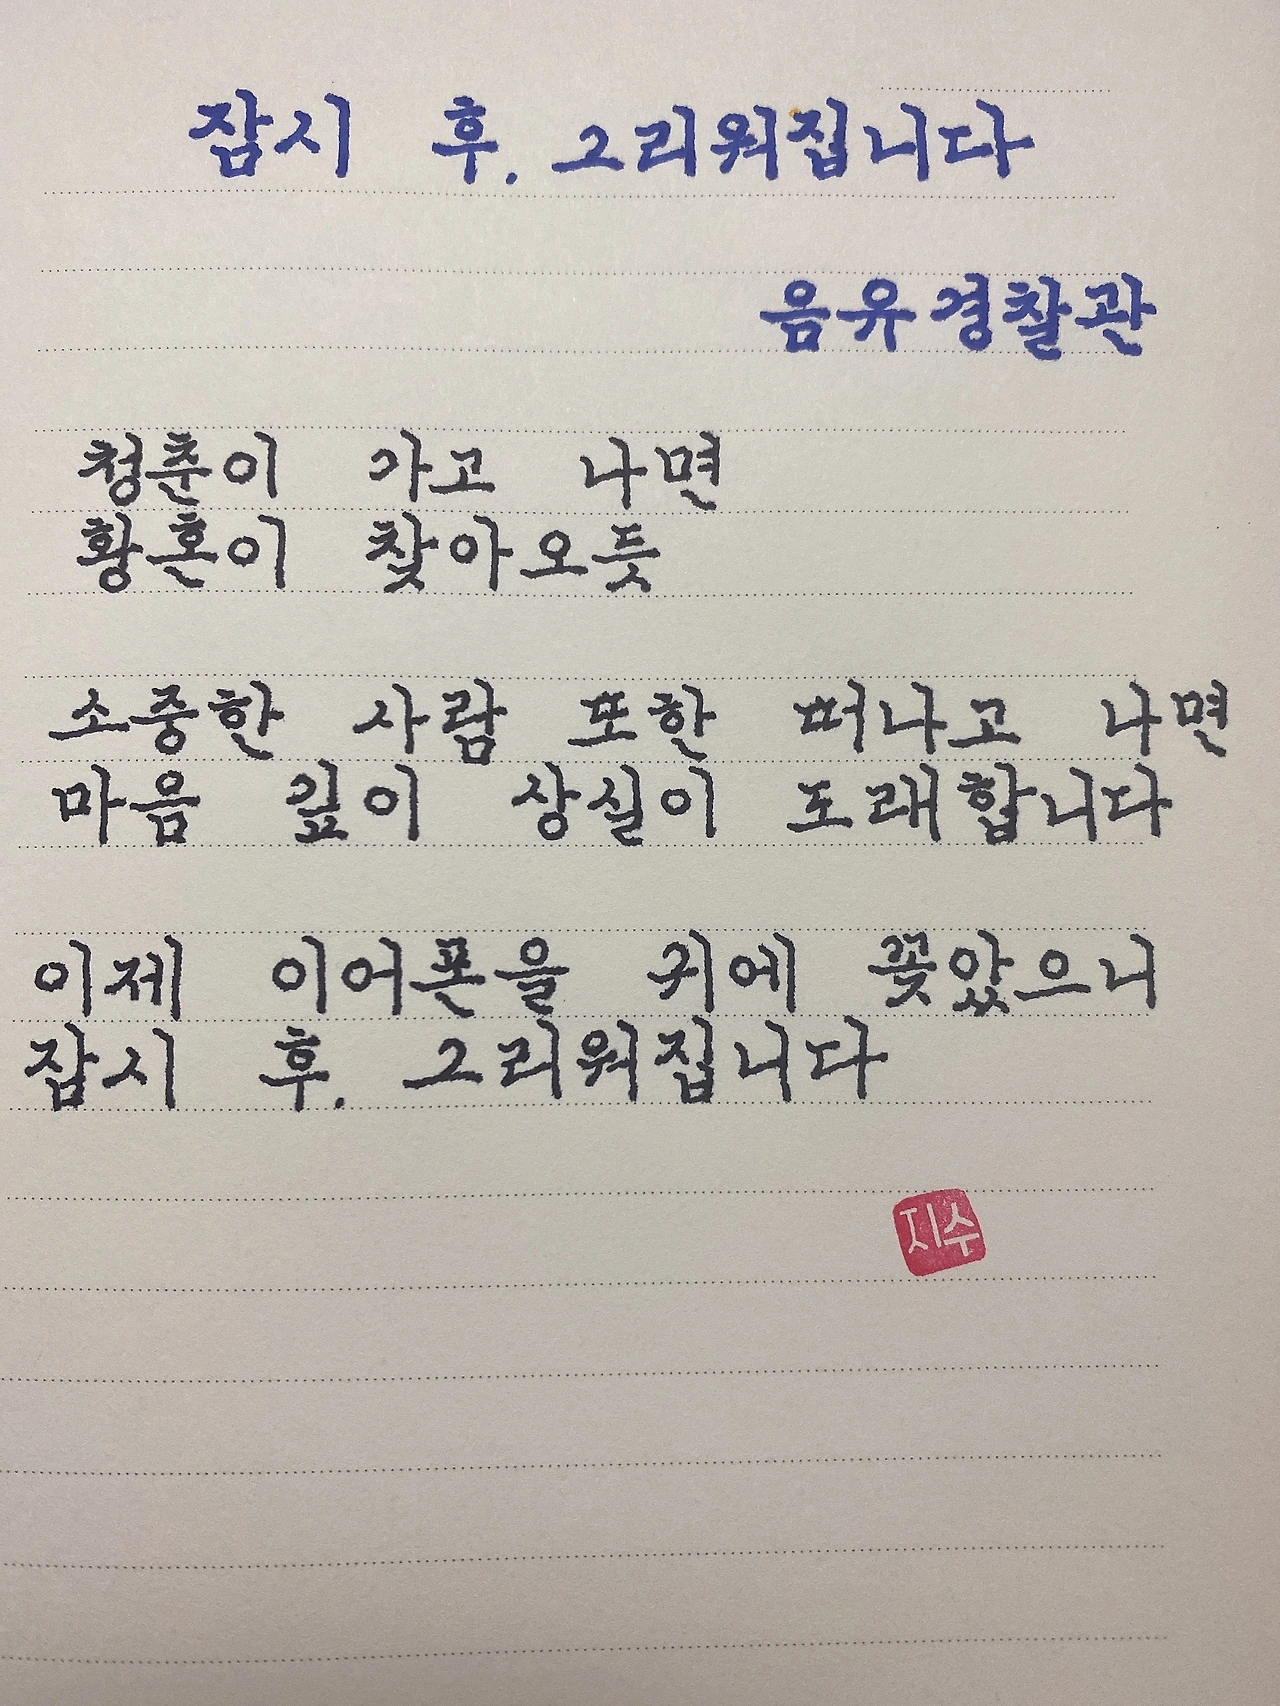 잠시 후. 그리워집니다
음유경찰관
청춘이 가고 나면
황혼이 찾아오듯
소중한 사람 또한 떠나고 나면
마음 깊이 상실이 도래합니다
이제 이어폰을 귀에 꽂았으니
잠시 후. 그리워집니다
지수